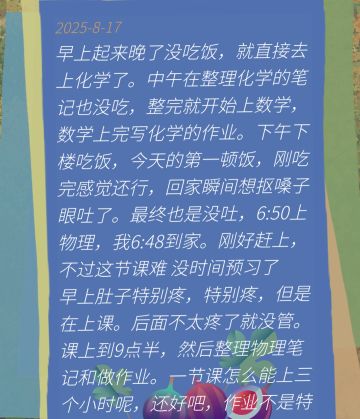 2025-8-17
早上起来晚了没吃饭，就直接去
上化学了。中午在整理化学的笔
记也没吃，整完就开始上数学，
数学上完写化学的作业。下午下
楼吃饭，今天的第一顿饭，刚吃
完感觉还行，回家瞬间想抠嗓子
眼吐了。最终也是没吐，6:50上
物理，我6:48到家。刚好赶上，
不过这节课难 没时间预习了
早上肚子特别疼，特别疼，但是
在上课。后面不太疼了就没管。
课上到9点半，然后整理物理笔
记和做作业。一节课怎么能上三
个小时呢，还好吧，作业不是特